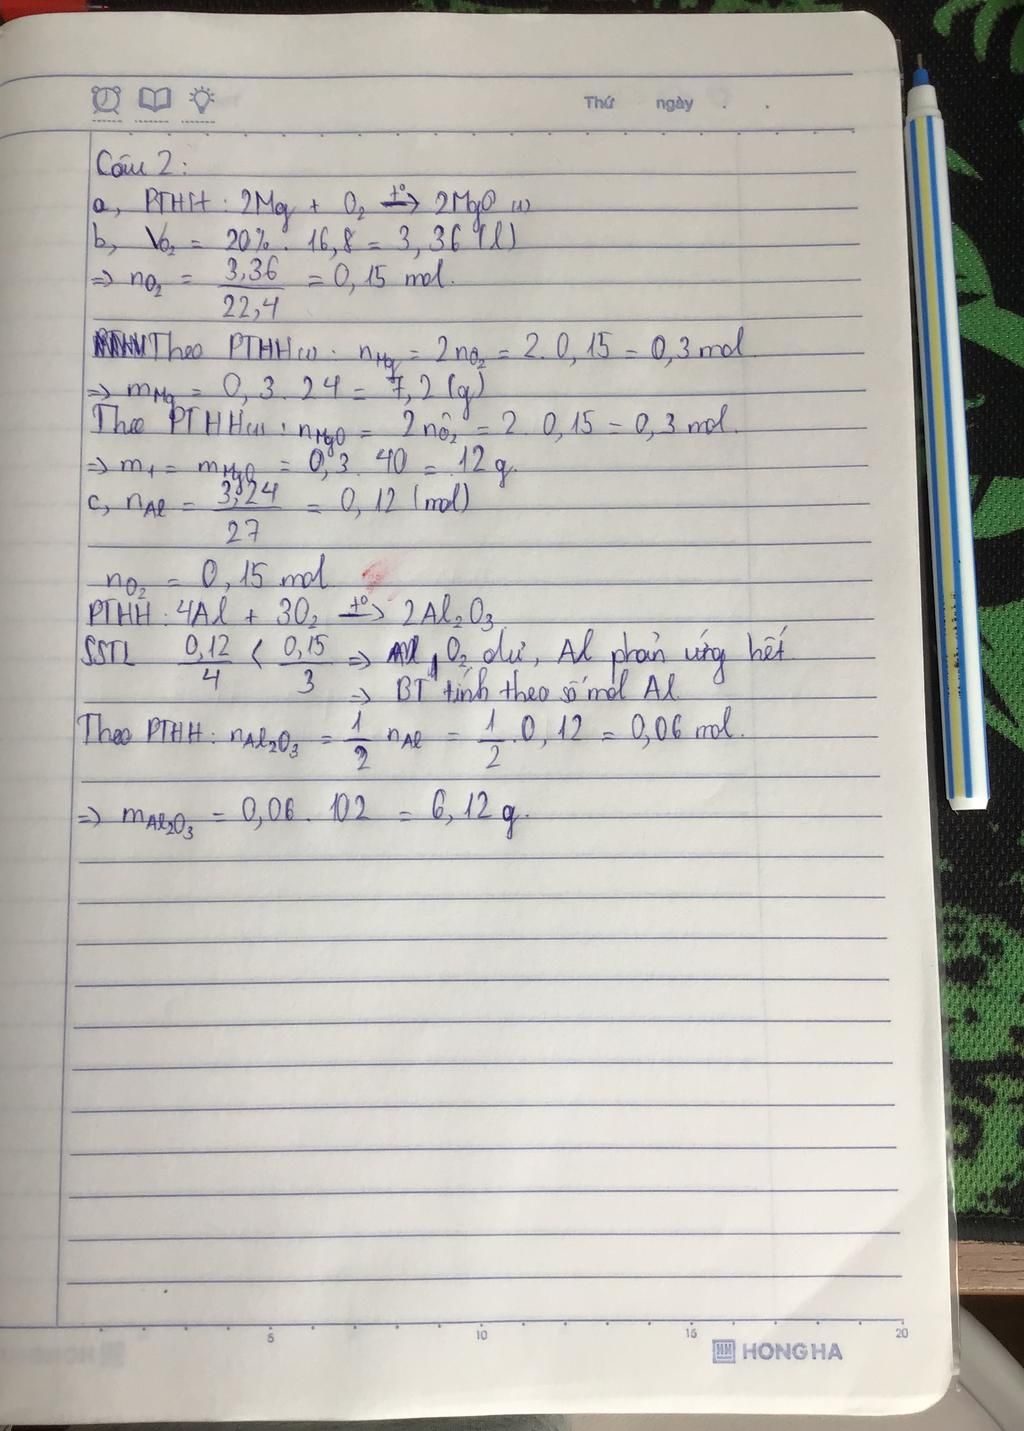 Thứ ngày . .
Câu 2:
a, PTHH: 2Mg + O₂ t°→ 2MgO (1)
b, V_O₂ = 20% . 16,8 = 3,36 (l)
=> n_O₂ = 3,36/22,4 = 0,15 mol.
Theo PTHH(1): n_Mg = 2n_O₂ = 2. 0,15 = 0,3 mol.
=> m_Mg = 0,3. 24 = 7,2 (g)
Theo PTHH(1): n_MgO = 2n_O₂ = 2. 0,15 = 0,3 mol.
=> m₁ = m_MgO = 0,3. 40 = 12 g.
c, n_Al = 3,24/27 = 0,12 (mol)
n_O₂ = 0,15 mol
PTHH: 4Al + 3O₂ t°→ 2Al₂O₃
SSTL 0,12/4 < 0,15/3 => O₂ dư, Al phản ứng hết
=> BT tính theo số mol Al
Theo PTHH: n_Al₂O₃ = 1/2 n_Al = 1/2 . 0,12 = 0,06 mol.
=> m_Al₂O₃ = 0,06. 102 = 6,12 g.
5 10 15 20
HH HONG HA